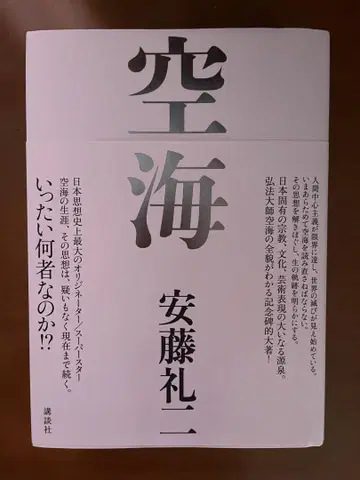 空海
安藤礼二
人間中心主義が限界に達し、世界の滅びが見え始めている。
いまあらためて空海を読み直さねばならない。
その思想を解きほぐし、生の軌跡を明らかにする。
日本固有の宗教、文化、芸術表現の大いなる源泉。
弘法大師空海の全貌がわかる記念碑的大著!
日本思想史上最大のオリジネーター/スーパースター
空海の生涯、その思想は、疑いもなく現在まで続く。
いったい何者なのか!?
講談社